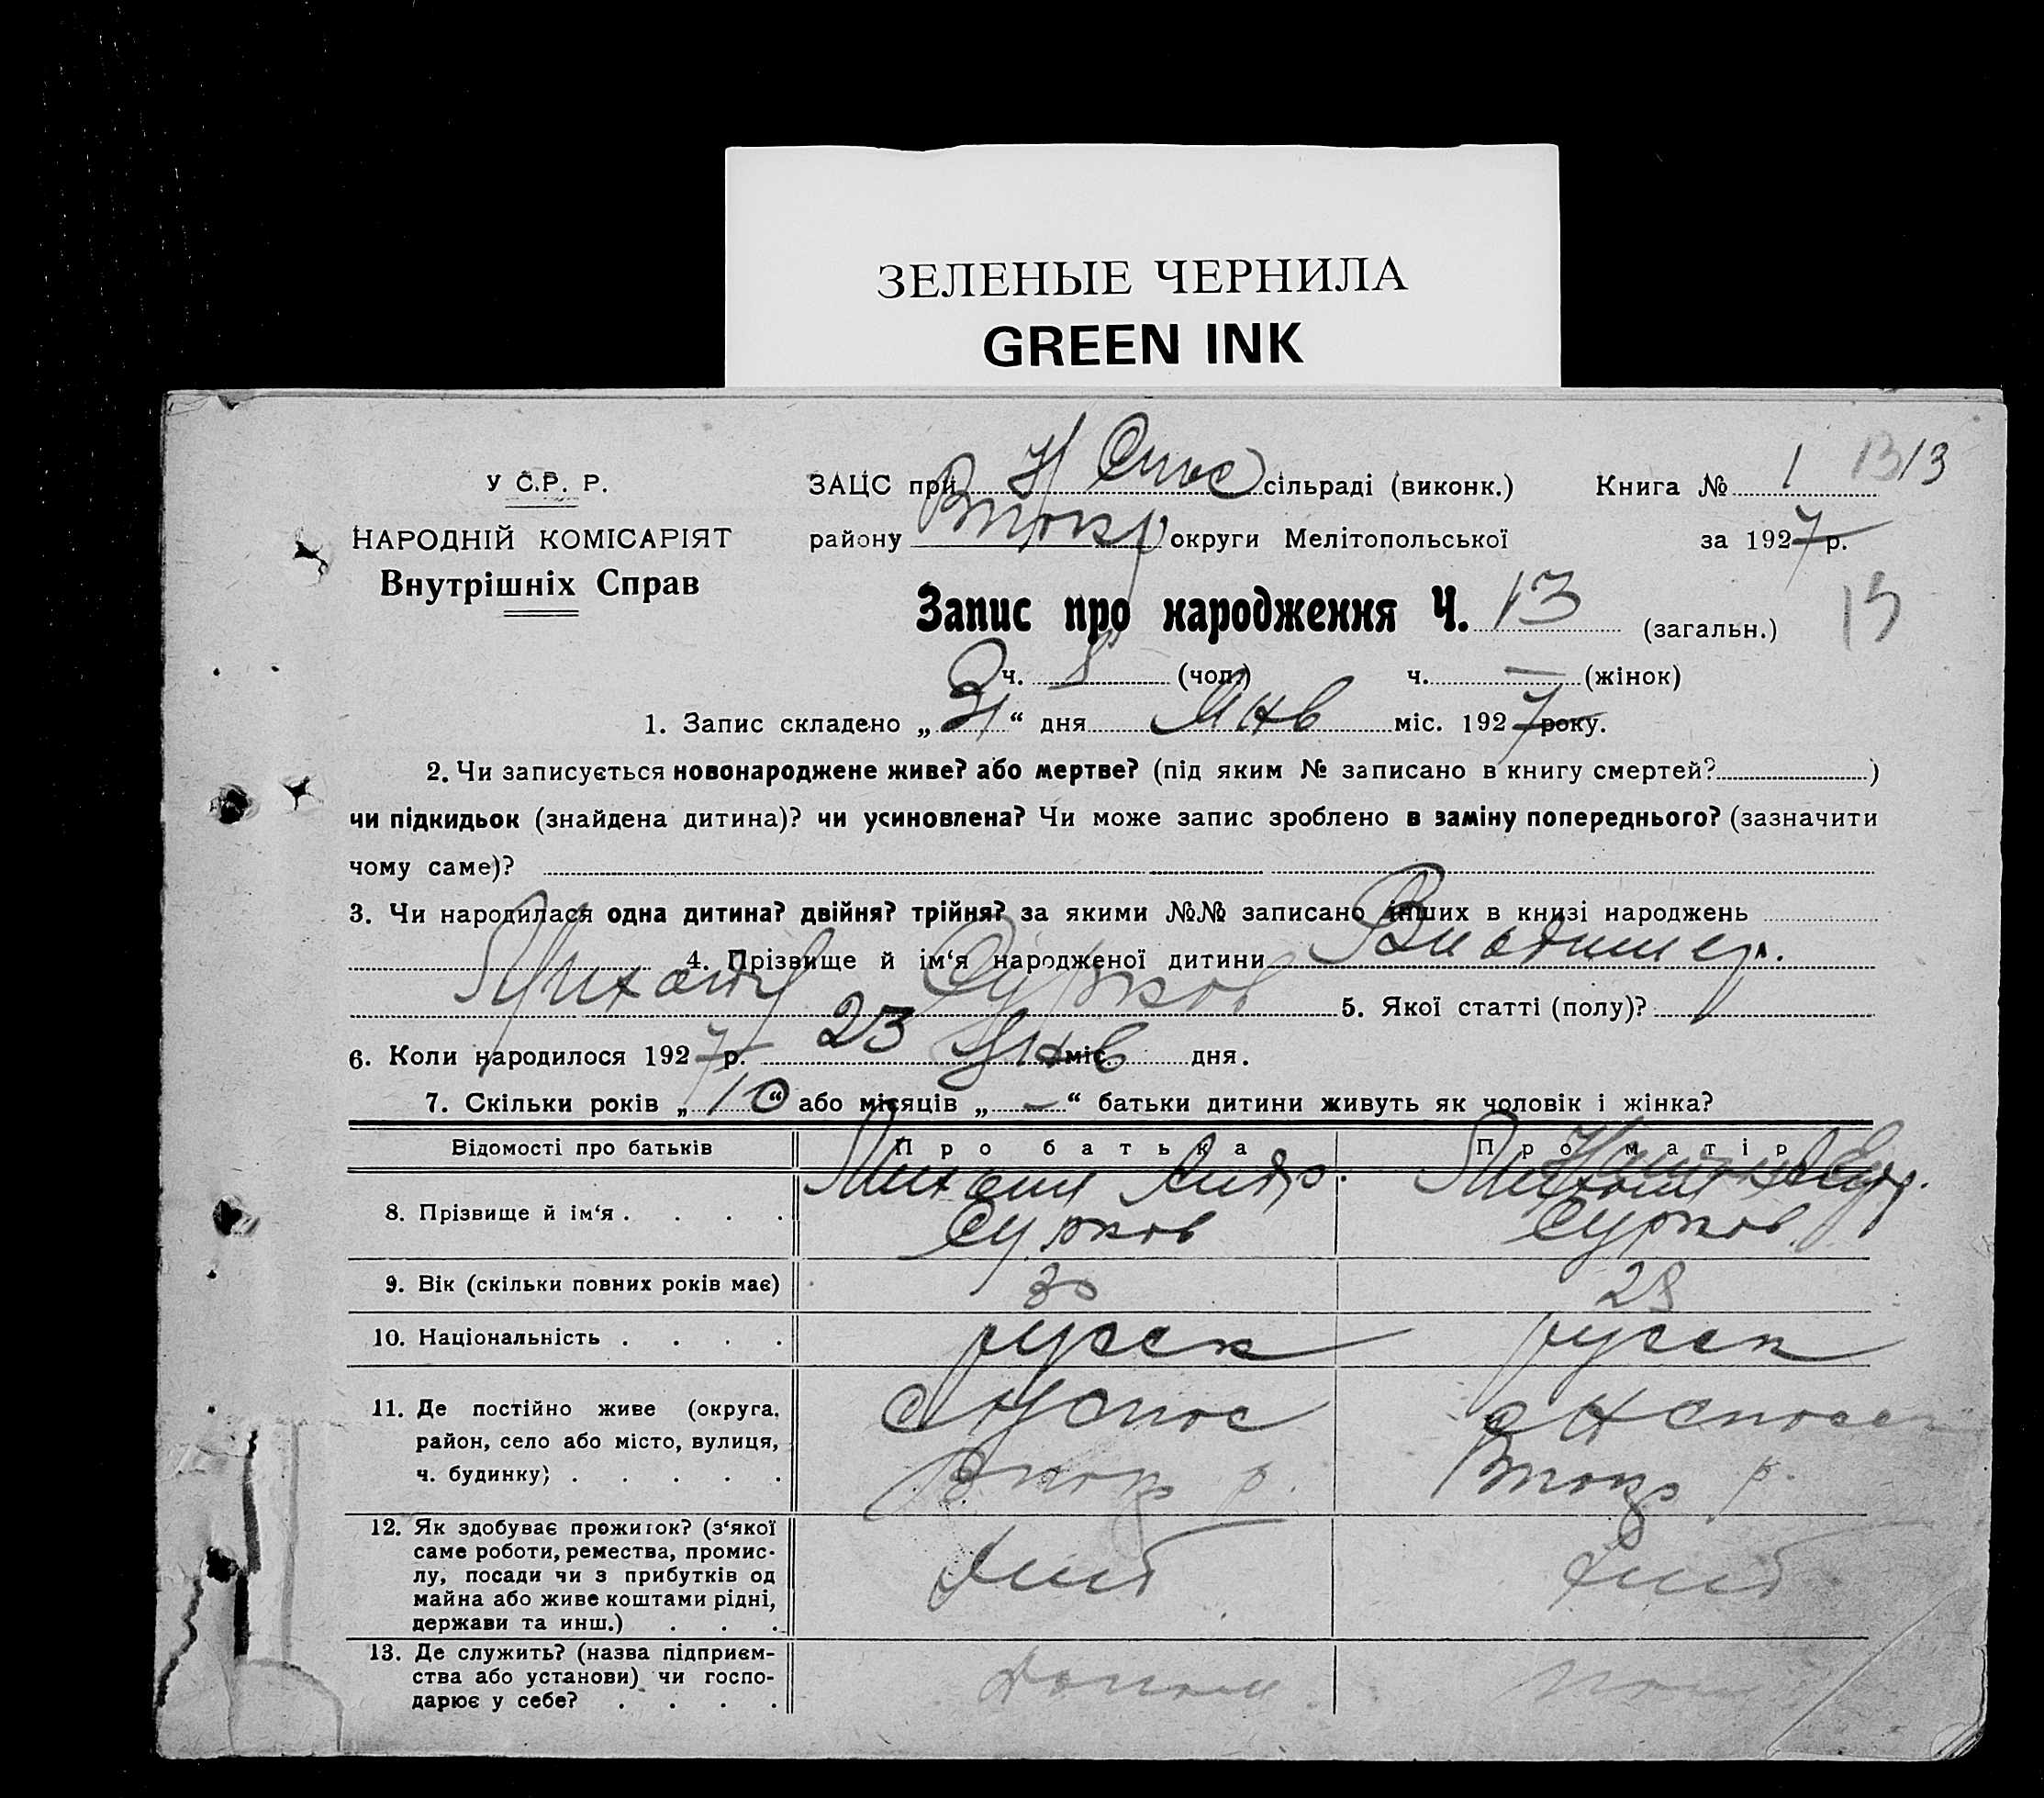 ЗЕЛЕНЫЕ ЧЕРНИЛА
GREEN INK
У С.Р. Р.
НАРОДНІЙ КОМІСАРІЯТ
Внутрішніх Справ
ЗАЦС при Н Спас сільраді (виконк.)
району округи Мелітопольської
Книга № 1 13 13
за 1927 р.
Запис про народження Ч. 13 (загальн.)
ч. 8 (чол.) ч. — (жінок)
1. Запис складено „31“ дня Янв міс. 1927 року.
2. Чи записується новонароджене живе? або мертве? (під яким № записано в книгу смертей? )
чи підкидьок (знайдена дитина)? чи усиновлена? Чи може запис зроблено в заміну попереднього? (зазначити
чому саме)?
3. Чи народилася одна дитина? двійня? трійня? за якими №№ записано інших в книзі народжень
4. Прізвище й ім‘я народженої дитини Владимир.
Сурков 5. Якої статті (полу)?
6. Коли народилося 1927 р. 23 Янв міс. дня.
7. Скільки років „10“ або місяців „—“ батьки дитини живуть як чоловік і жінка?
Відомості про батьків Про батька Про матір
8. Прізвище й ім‘я . . . . Михаил Андр. Сурков Сурков
9. Вік (скільки повних років має) 30 28
10. Національність . . . . русск русск
11. Де постійно живе (округа,
район, село або місто, вулиця,
ч. будинку) . . . . .
с Н Спас с Н Спасск
р. р.
12. Як здобуває прожиток? (з‘якої
саме роботи, ремества, промис-
лу, посади чи з прибутків од
майна або живе коштами рідні,
держави та инш.) . . .
13. Де служить? (назва підприєм-
ства або установи) чи госпо-
дарює у себе? . . . .